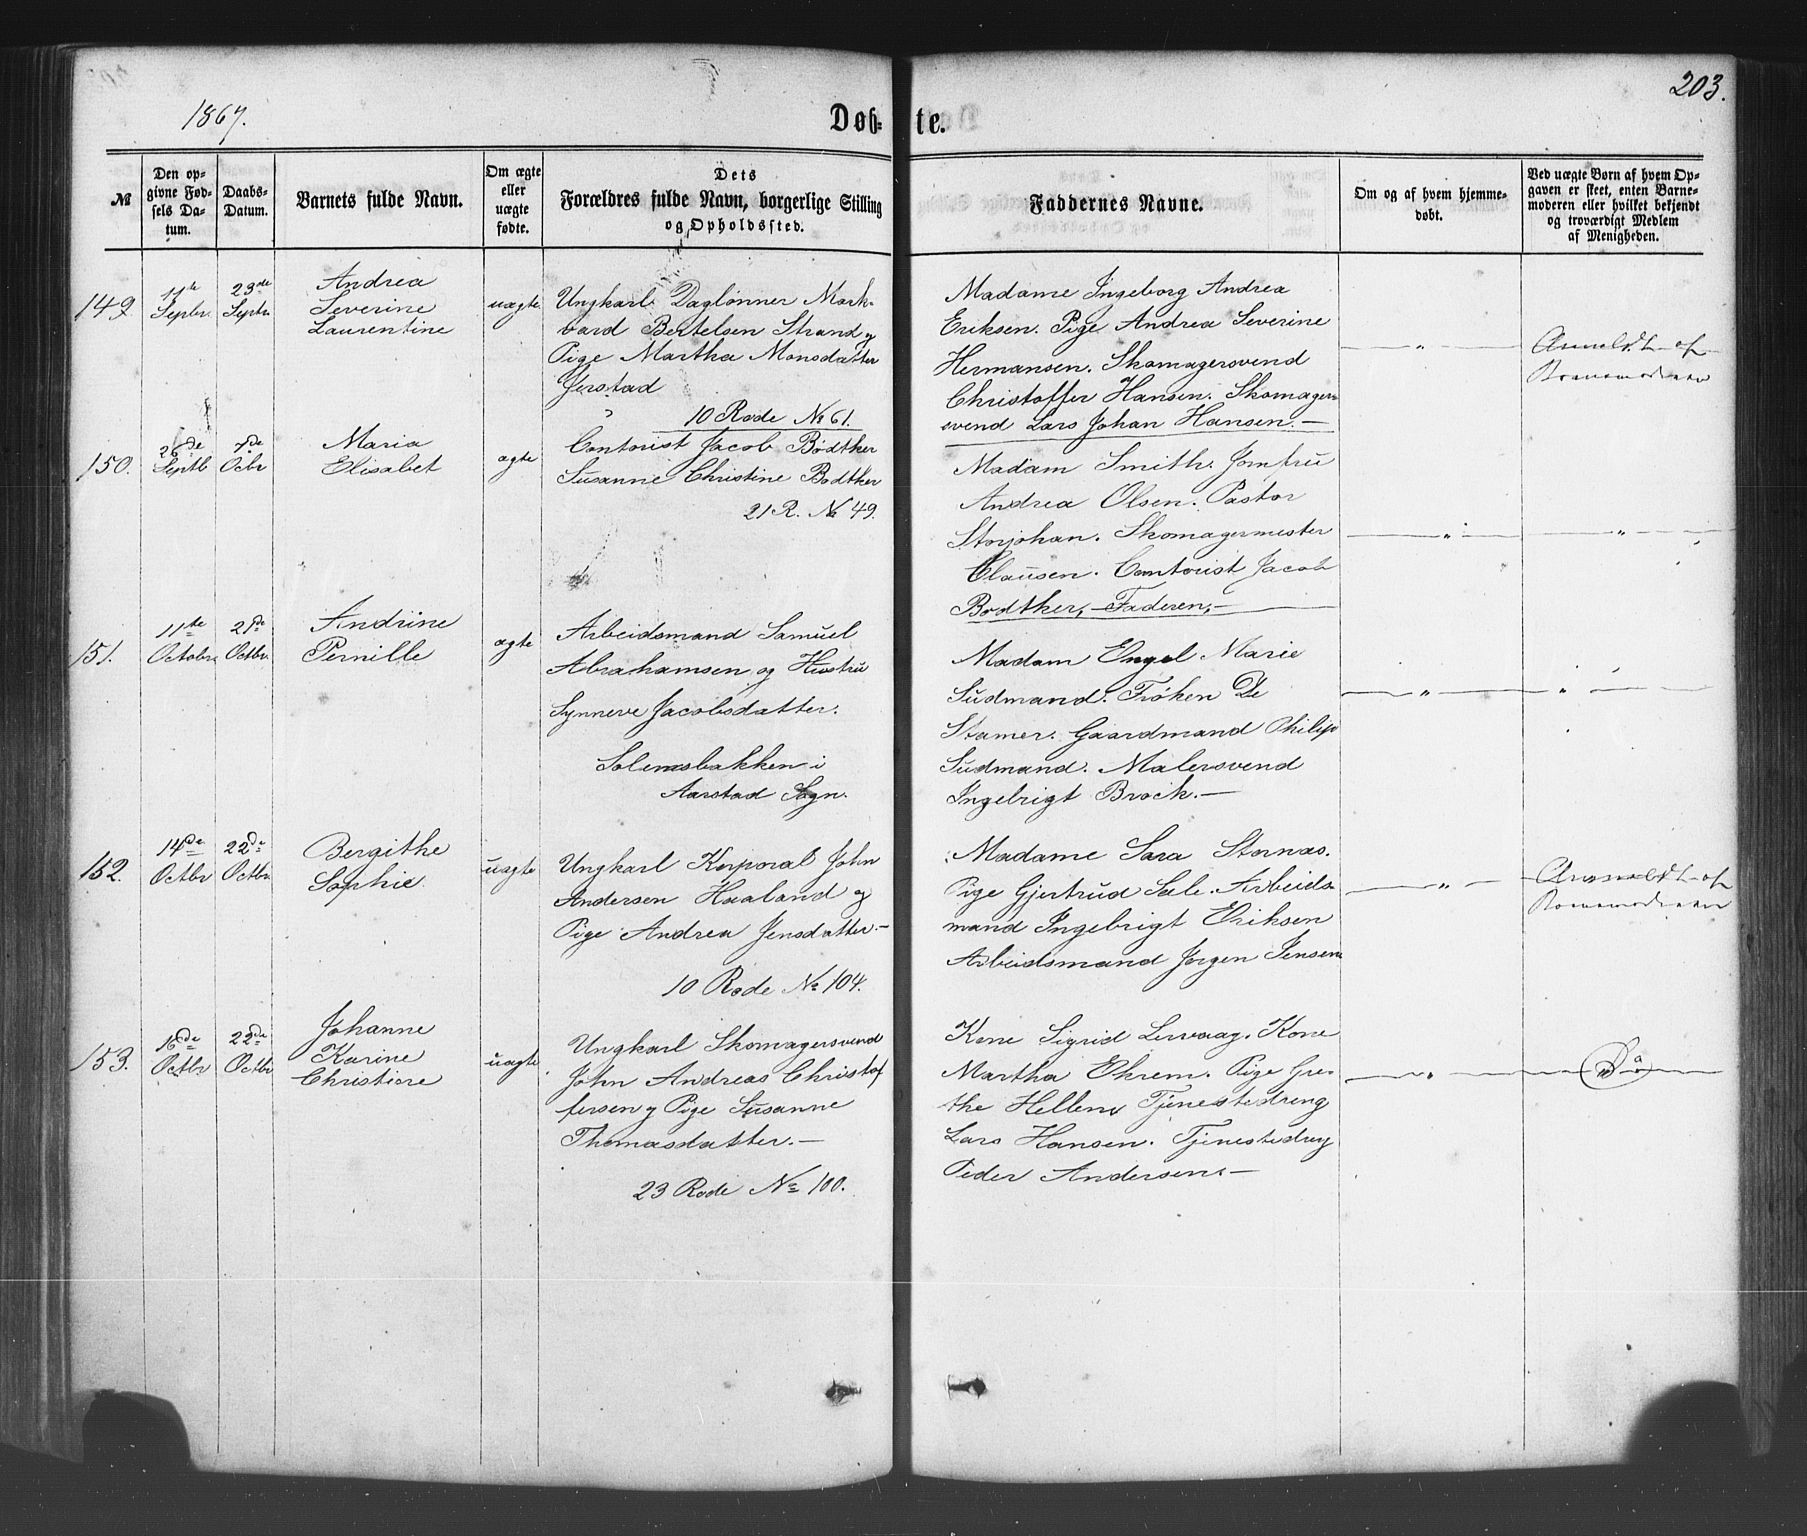 203.
1867.
Døb- te.
№
Den op-
givne Fød-
sels Da-
tum.
Daabs-
Datum.
Barnets fulde Navn.
Om ægte
eller
uægte
fødte.
Dets
Forældres fulde Navn, borgerlige Stilling
og Opholdssted.
Faddernes Navne.
Om og af hvem hjemme-
døbt.
Ved uægte Børn af hvem Op-
gaven er skeet, enten Barne-
moderen eller hvilket bekjendt
og troværdigt Medlem
af Menigheden.
149.
Septbr.
23de
Septbr
Andrea
Severine
Laurentine
uægte
Ungkarl Daglønner Mark-
vard Bertelsen Strand og
Pige Martha Monsdatter
Jerstad
10 Rode № 61.
Madame Ingeborg Andrea
Eriksen. Pige Andrea Severine
Hermansen. Skomagersvend
Christoffer Hansen. Skomager-
svend Lars Johan Hansen. —
— " —
Anmeldt af
Barnemoderen
150.
26de
Septb
7de
Octbr
Maria
Elisabet
ægte
Contorist Jacob Bødtker
Susanne Christine Bødtker
21 R. № 49.
Madam Smith. Jomfru
Andrea Olsen. Pastor
Storjohan. Skomagermester
Clausen. Contorist Jacob
Bødtker, — Faderen, —
— " —
— " —
151.
11te
Octobr.
21de
Octbr.
Andrine
Pernille
ægte
Arbeidsmand Samuel
Abrahamsen og Hustru
Synneve Jacobsdatter.
Solemsbakken i
Aarstad Sogn.
Madam Engel Marie
Sudmand. Frøken De
Stamer. Gaardmand Philip
Sudmand. Malersvend
Ingebrigt Brock. —
— " —
— " —
152.
14de
Octbr
22de
Octbr.
Bergithe
Sophie
uægte
Ungkarl Korporal John
Andersen Haaland og
Pige Andrea Jensdatter. —
10 Rode № 104.
Madame Sara Stornæs.
Pige Gjertrud Sæle. Arbeids-
mand Ingebrigt Eriksen
Arbeidsmand Jørgen Jensen
— " —
Anmeldt af
Barnemoderen
153.
16de
Octbr
22de
Octbr
Johanne
Karine
Christine
uægte
Ungkarl Skomagersvend
John Andreas Christof
fersen og Pige Susanne
Thomasdatter. —
23 Rode № 100.
Kone Sigrid Lervaag. Kone
Martha Ekrem. Pige Gre-
the Hellen, Tjenestedreng
Lars Hansen. Tjenestedreng
Peder Andersen. —
— " —
Do